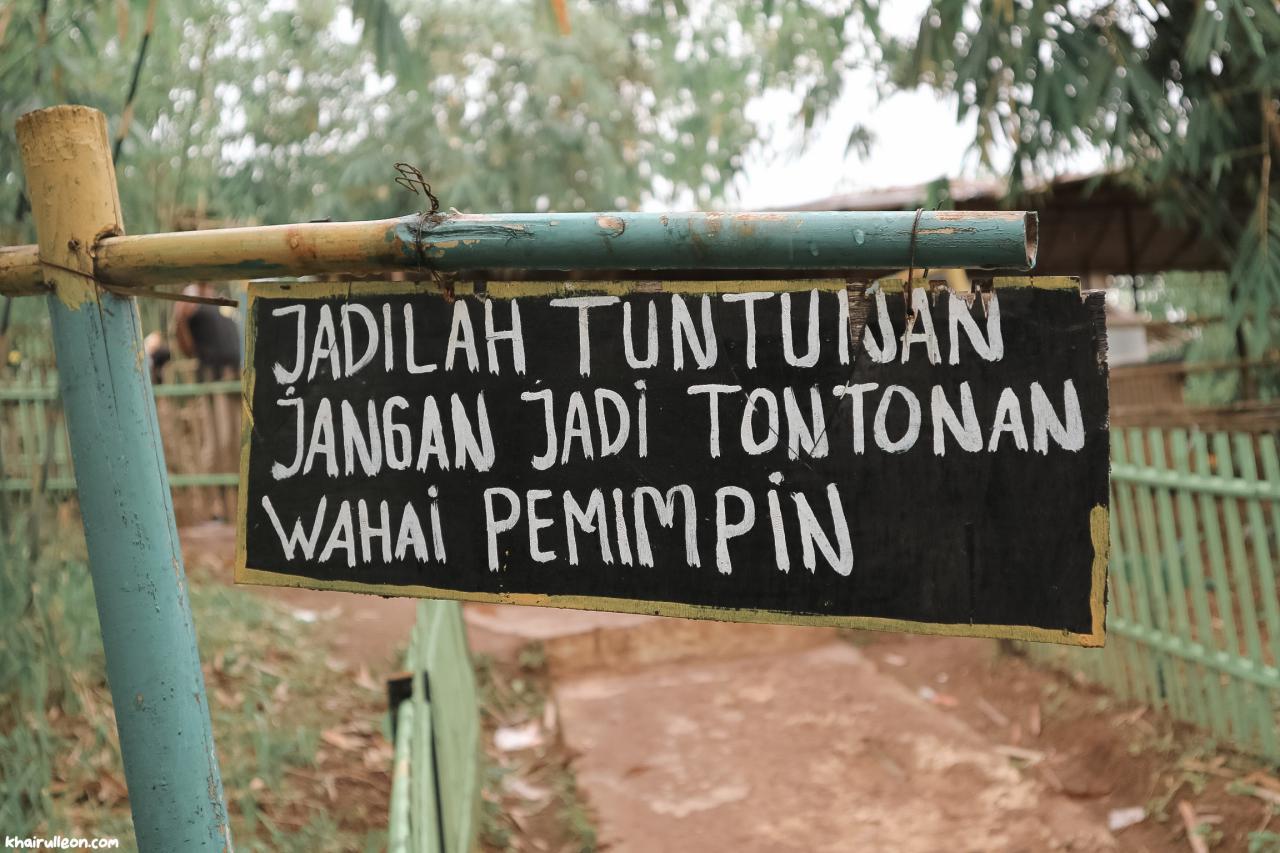 JADILAH TUNTUNAN
JANGAN JADI TONTONAN
WAHAI PEMIMPIN
khairulleon.com